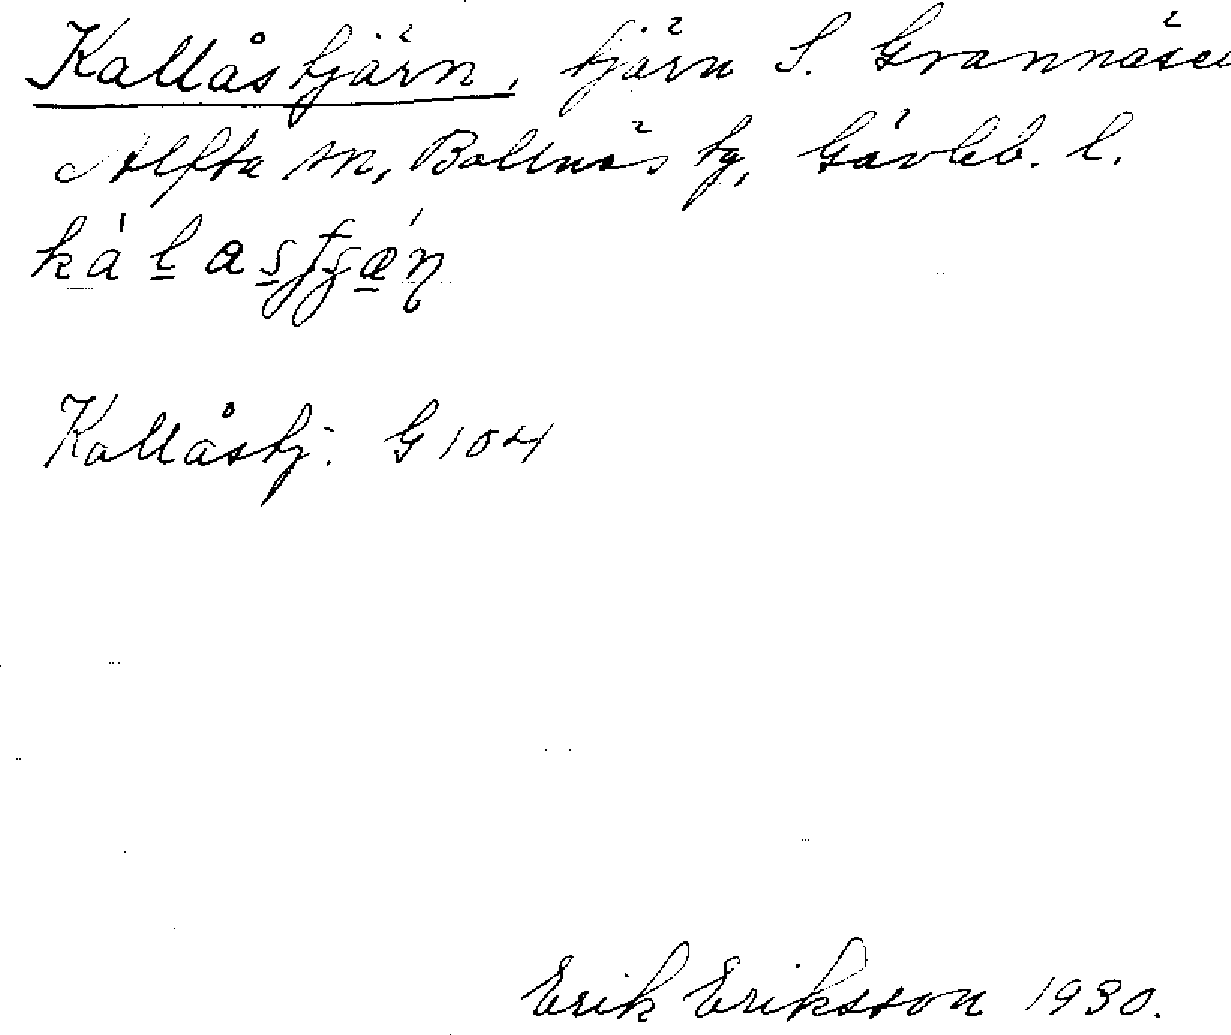 Kallåstjärn, tjärn S. Grannäsen
Alfta sn, Bollnäs tg, Gävleb. l.
Kallåstj. G 104
Erik Eriksson 1930.